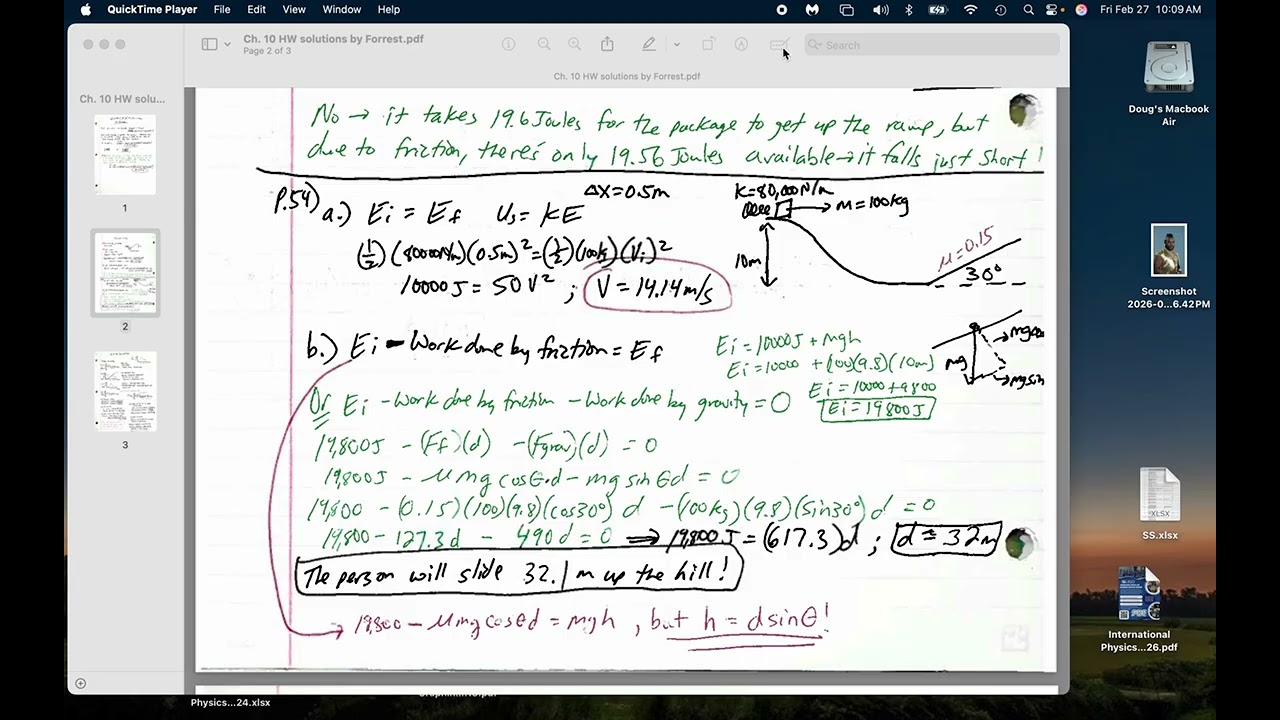 QuickTime Player File Edit View Window Help
Fri Feb 27 10:09AM
Ch. 10 HW solutions by Forrest.pdf
Page 2 of 3
Search
Ch. 10 HW solu...
Ch. 10 HW solutions by Forrest.pdf
1
2
3
No → it takes 19.6 Joules for the package to get up the ramp, but
due to friction, there's only 19.56 Joules available → it falls just short!
P.54) a.) Ei = Ef Us = KE
Δx=0.5m
K=80,000N/m
→ m=100kg
10m
μ=0.15
30°
(1/2)(80000N/m)(0.5m)²=(1/2)(100kg)(V₁)²
10000J = 50V² ; V = 14.14m/s
b.) Ei - Work done by friction = Ef
Ei = 10000J + mgh
Ei = 10000 + (100)(9.8)(10m)
Ei = 10000+9800
Ei = 19800J
mg
mgsin
Or Ei - work done by friction - work done by gravity = 0
19,800J - (Ff)(d) - (Fgrav)(d) = 0
19,800J - μmg cosθ·d - mg sinθd = 0
19,800 - (0.15)(100)(9.8)(cos30°) d - (100kg)(9.8)(sin30°) d = 0
19,800 - 127.3d - 490d = 0 ⇒ 19,800J = (617.3)d ; d = 32m
The person will slide 32.1m up the hill!
→ 19,800 - μmg cosθd = mgh , but h = dsinθ!
Doug's Macbook
Air
Screenshot
2026-0...6.42PM
XLSX
SS.xlsx
International
Physics...26.pdf
Physics...24.xlsx